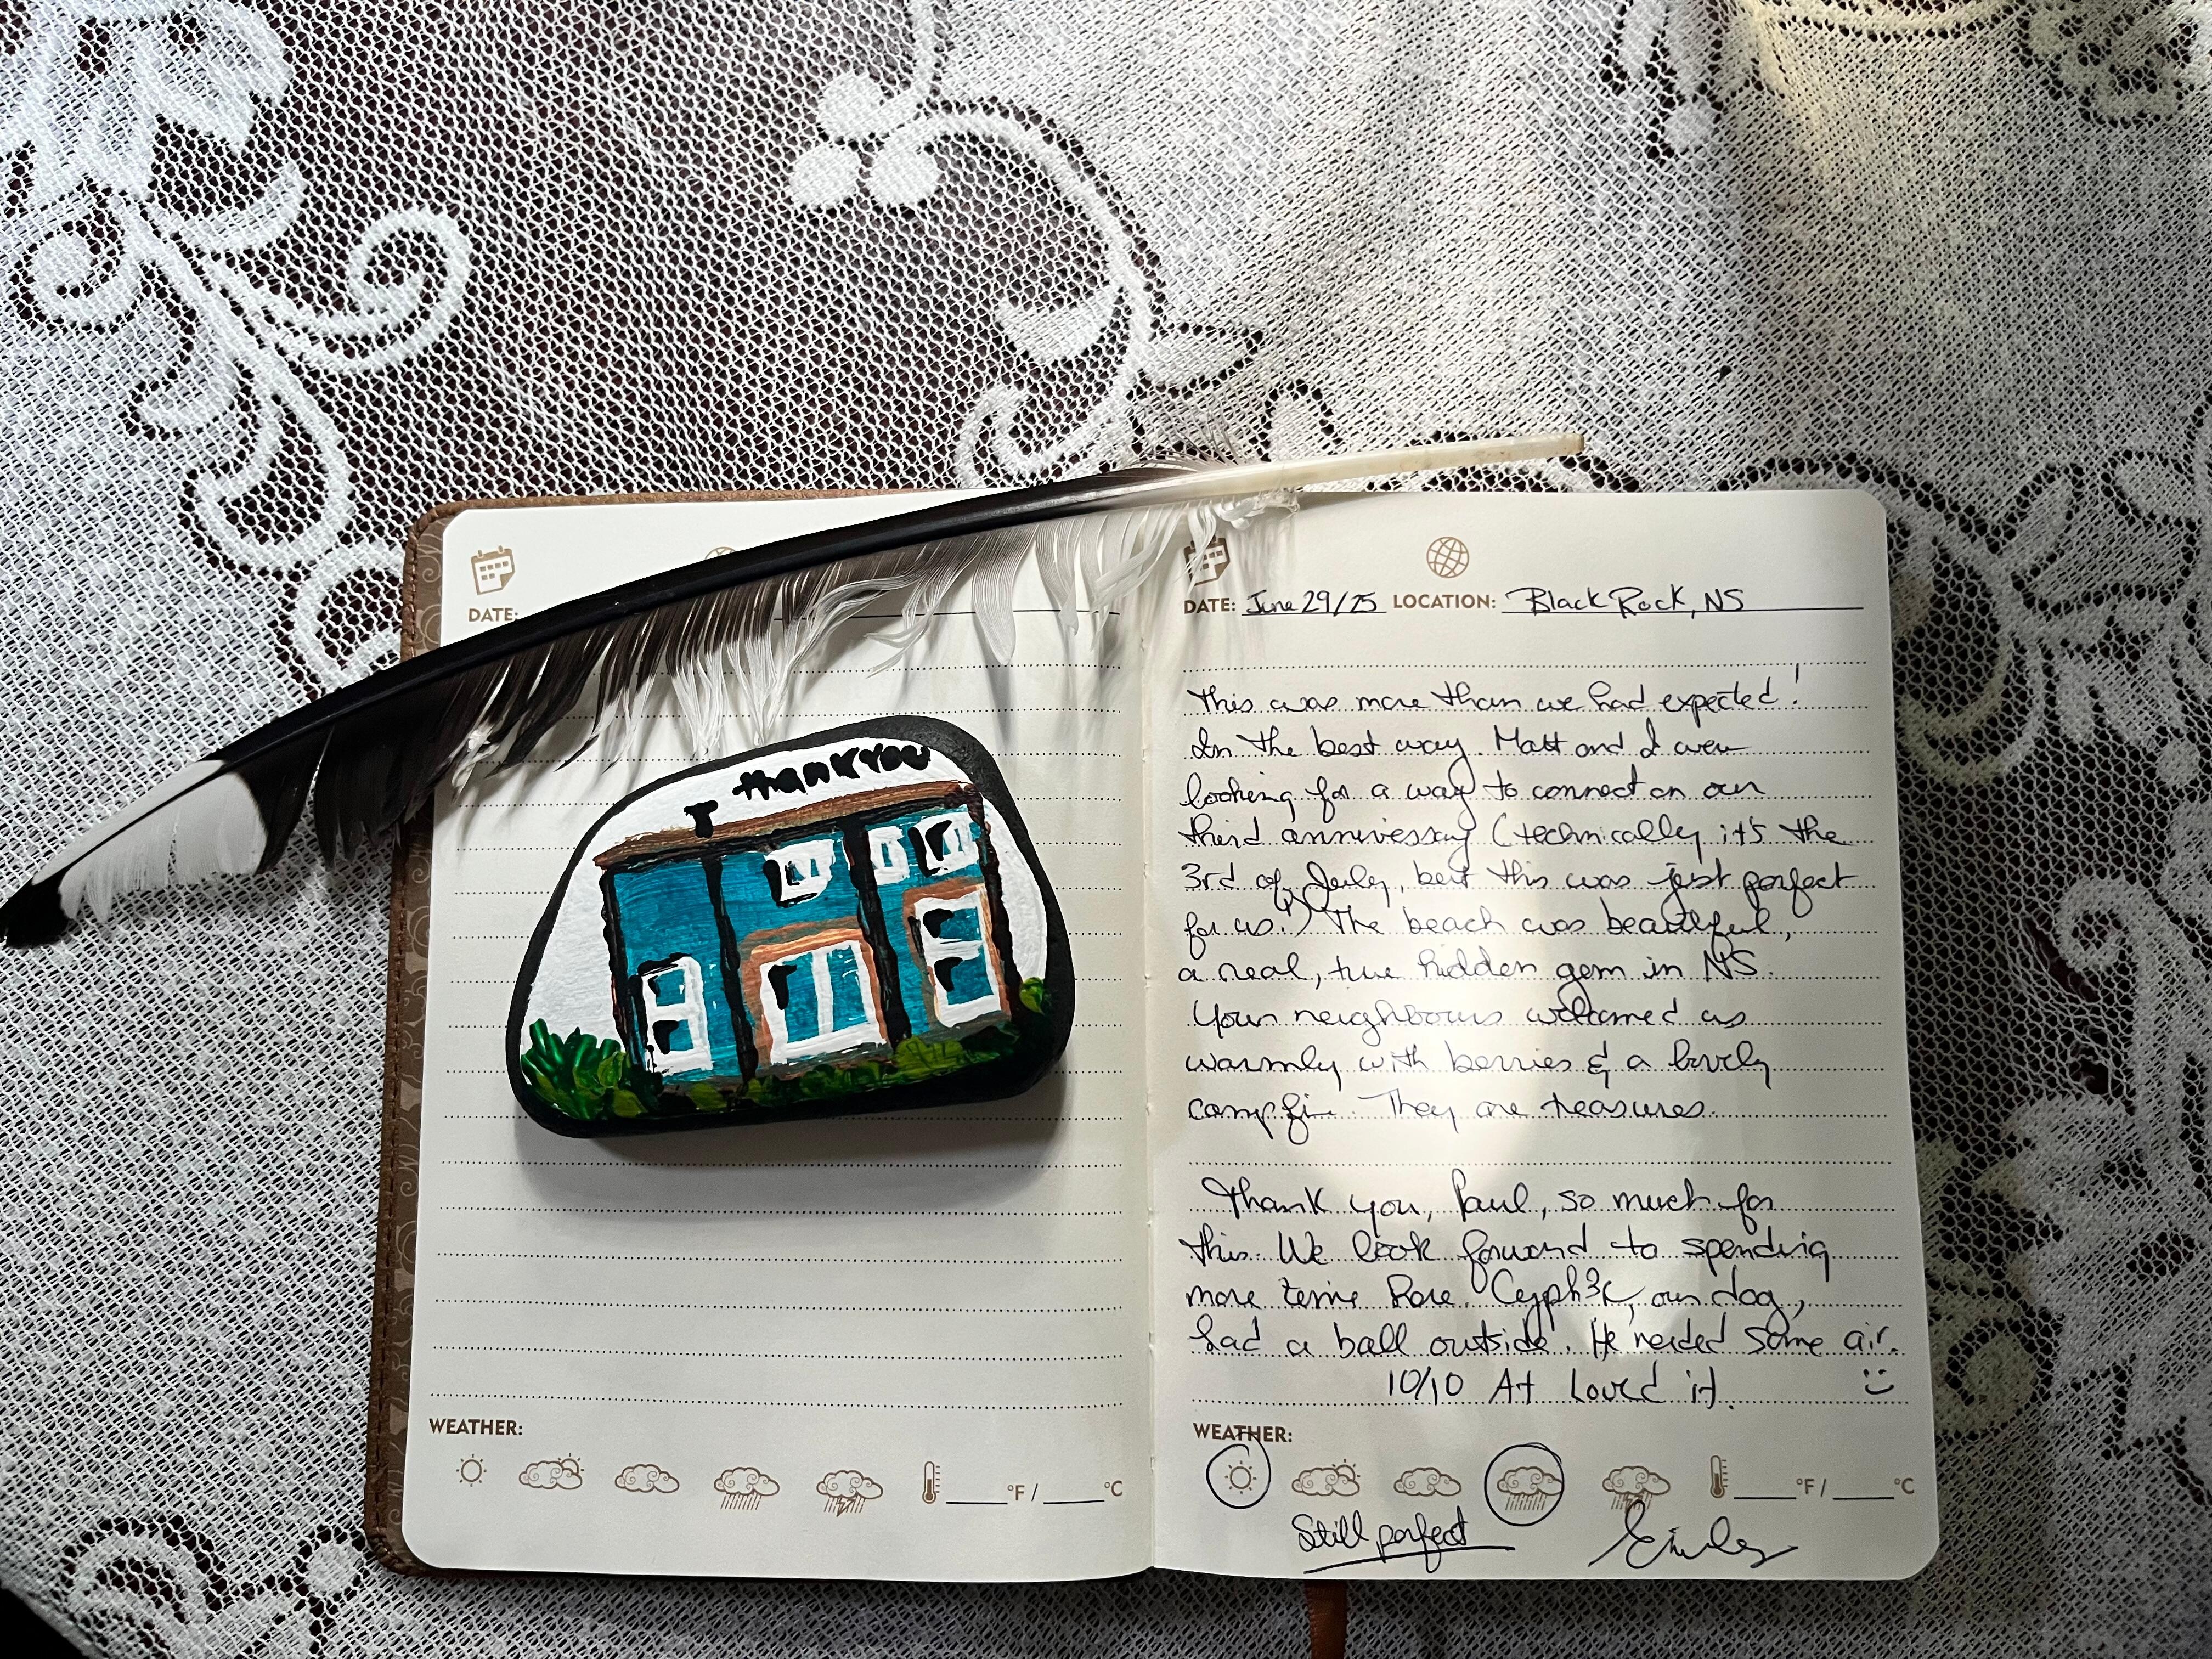 thank you
DATE:
WEATHER:
°F / °C
DATE: June 29/25 LOCATION: Black Rock, NS
This was more than we had expected!
In the best way. Matt and I were
looking for a way to connect on our
third anniversary (technically it's the
3rd of July, but this was just perfect
for us!) The beach was beautiful,
a real, true hidden gem in NS.
Your neighbours welcomed us
warmly with berries & a lovely
campfire. They are treasures.
Thank you, Paul, so much for
this. We look forward to spending
more time here. our dog,
had a ball outside. He needed some air.
10/10 Loved it. :)
WEATHER:
°F / °C
Still perfect